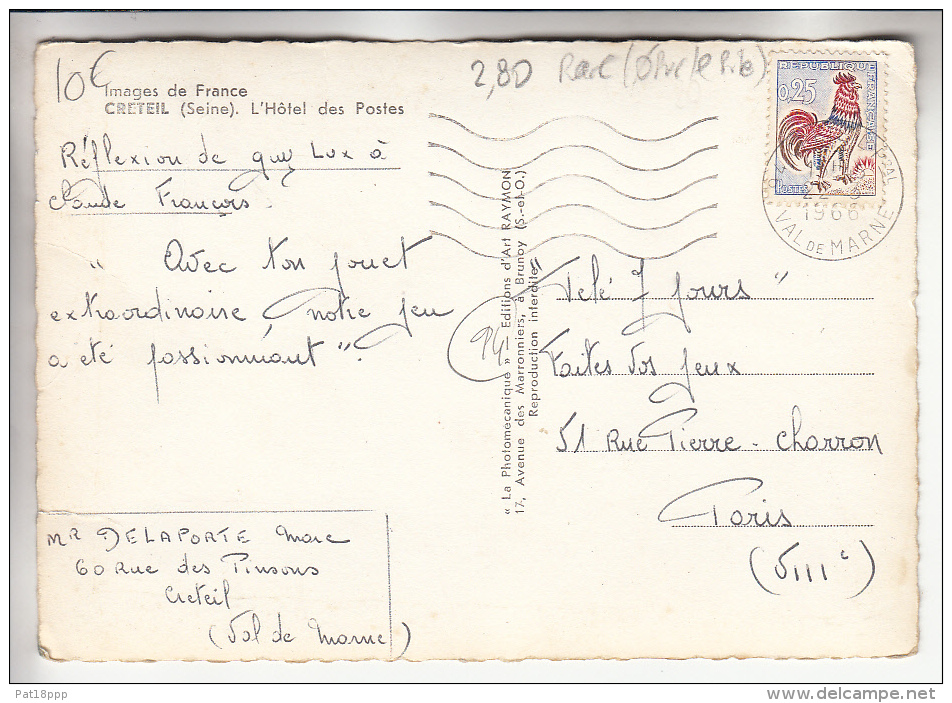 10€
2,80 Rare
Images de France
CRÉTEIL (Seine). L'Hôtel des Postes
Réflexion de guy Lux à
Claude François.
" Avec ton jouet
extraordinaire, notre jeu
a été passionnant".
Mr DELAPORTE Marc
60 Rue des Pinsons
Creteil
(Val de Marne)
« La Photomécanique » Editions d'Art RAYMON
17, Avenue des Marronniers, à Brunoy (S.-et-O.)
Reproduction interdite
94
REPUBLIQUE FRANÇAISE
0,25
POSTES
1966
VAL DE MARNE
"Télé 7 jours"
Faites vos jeux
51 Rue Pierre - Charron
Paris
(VIIIe)
Pat18ppp
www.delcampe.net